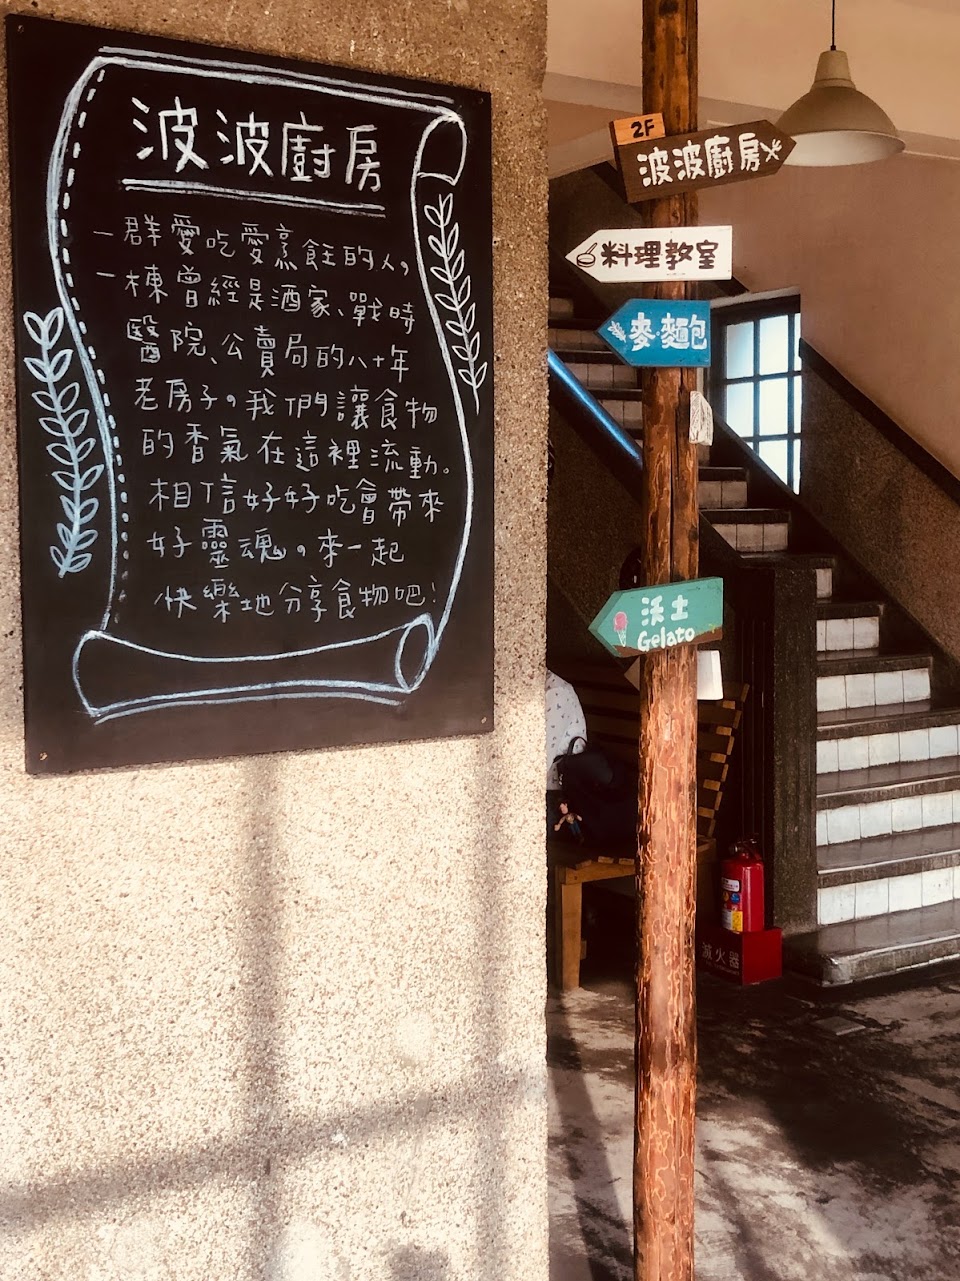 波波廚房
一群愛吃愛烹飪的人，
一棟曾經是酒家、戰時
醫院、公賣局的八十年
老房子。我們讓食物
的香氣在這裡流動。
相信好好吃會帶來
好靈魂。來一起
快樂地分享食物吧！
2F
波波廚房
料理教室
麥·麵包
沃土
Gelato
滅火器